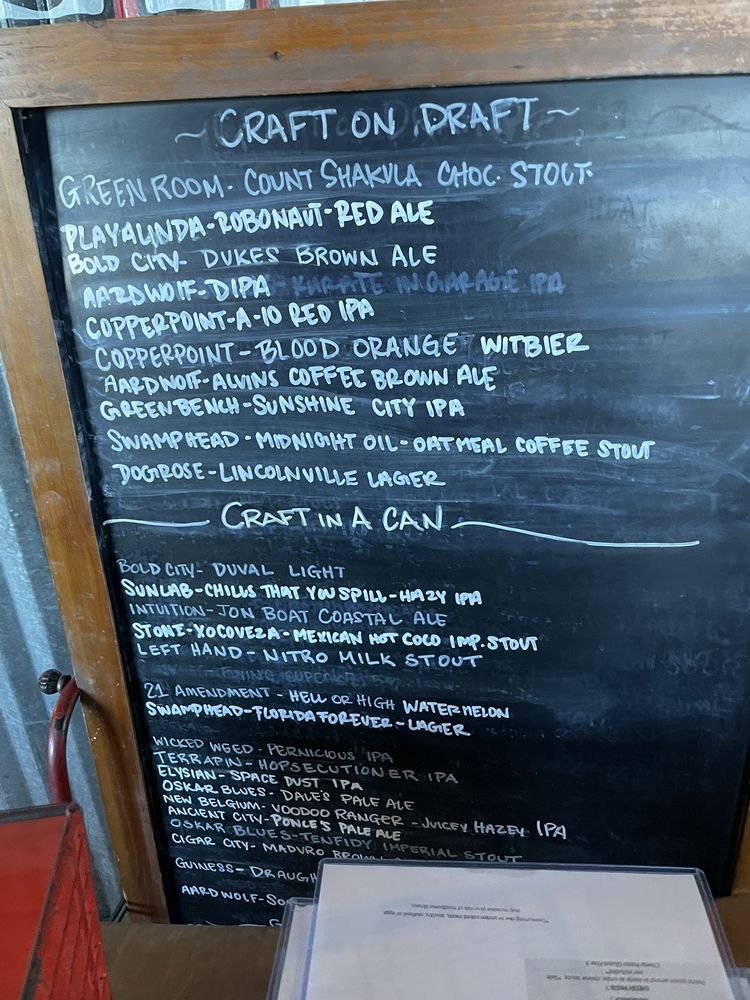 ~ CRAFT ON DRAFT ~
GREEN ROOM - COUNT SHAKULA CHOC. STOUT
PLAYALINDA - ROBONAUT - RED ALE
BOLD CITY - DUKES BROWN ALE
AARDWOLF - DIPA KARATE IN GARAGE IPA
COPPERPOINT - A-10 RED IPA
COPPERPOINT - BLOOD ORANGE WITBIER
AARDWOLF - ALVINS COFFEE BROWN ALE
GREEN BENCH - SUNSHINE CITY IPA
SWAMPHEAD - MIDNIGHT OIL - OATMEAL COFFEE STOUT
DOGROSE - LINCOLNVILLE LAGER
CRAFT IN A CAN
BOLD CITY - DUVAL LIGHT
SUNLAB - CHILLS THAT YOU SPILL - HAZY IPA
INTUITION - JON BOAT COASTAL ALE
STONE - XOCOVEZA - MEXICAN HOT COCO IMP. STOUT
LEFT HAND - NITRO MILK STOUT
21 AMENDMENT - HELL OR HIGH WATERMELON
SWAMPHEAD - FLORIDA FOREVER - LAGER
WICKED WEED - PERNICIOUS IPA
TERRAPIN - HOPSECUTIONER IPA
ELYSIAN - SPACE DUST IPA
OSKAR BLUES - DALE'S PALE ALE
NEW BELGIUM - VOODOO RANGER - JUICEY HAZEY IPA
ANCIENT CITY - PONCE'S PALE ALE
OSKAR BLUES - TENFIDY IMPERIAL STOUT
CIGAR CITY - MADURO BROWN
GUINESS - DRAUGH
AARDWOLF - SO